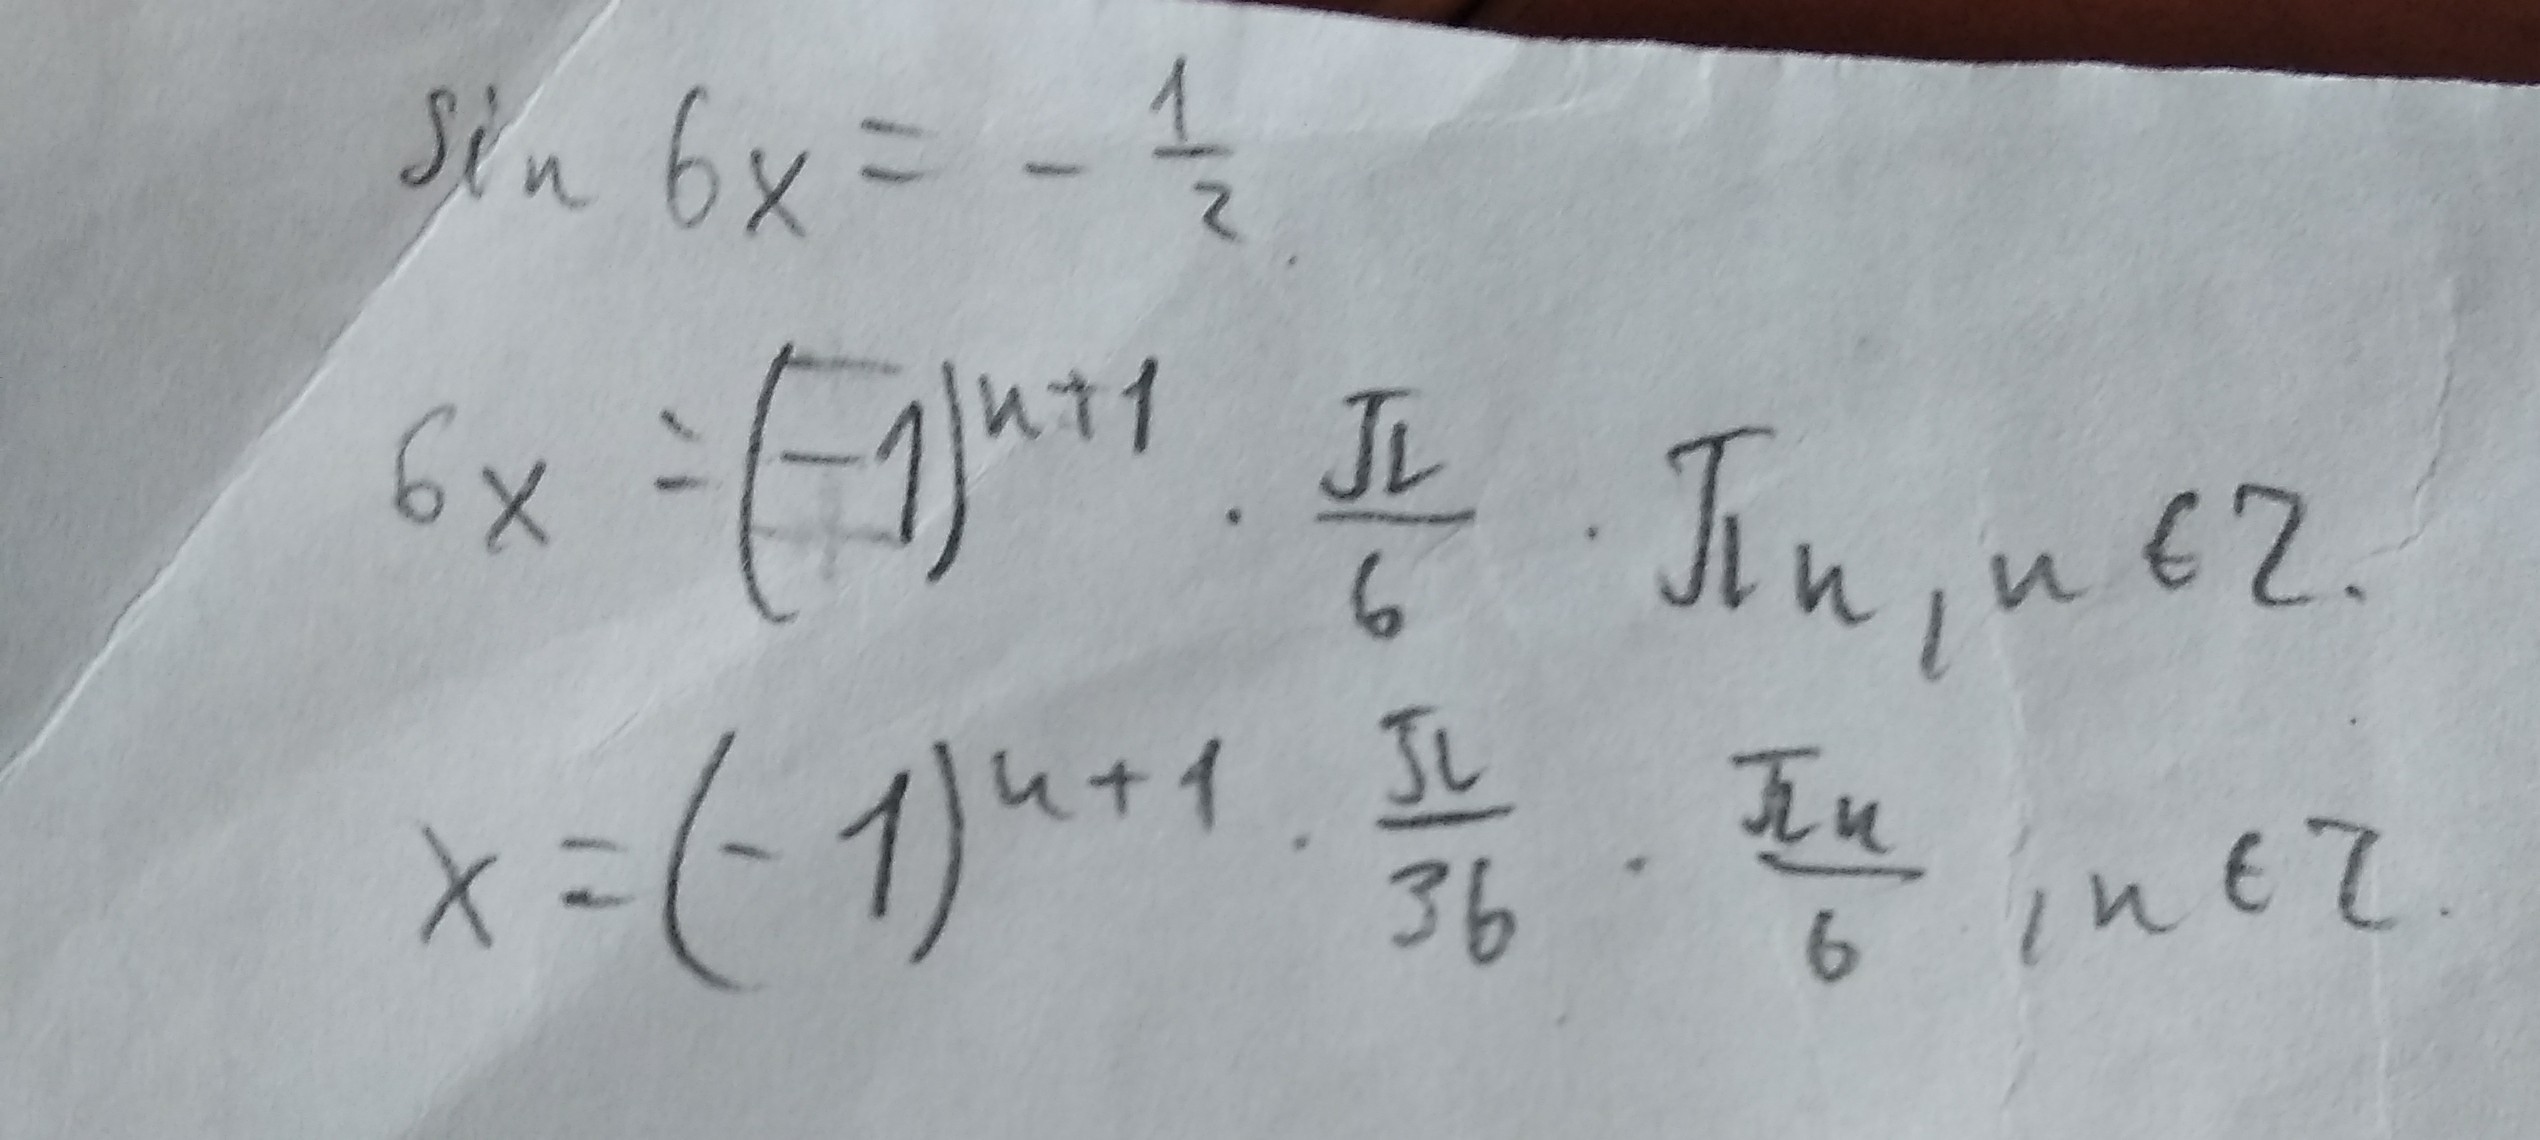 sin 6x = - 1/2.
6x = (-1)^(n+1) · π/6 · πn, n ∈ Z.
x = (-1)^(n+1) · π/36 · πn/6, n ∈ Z.